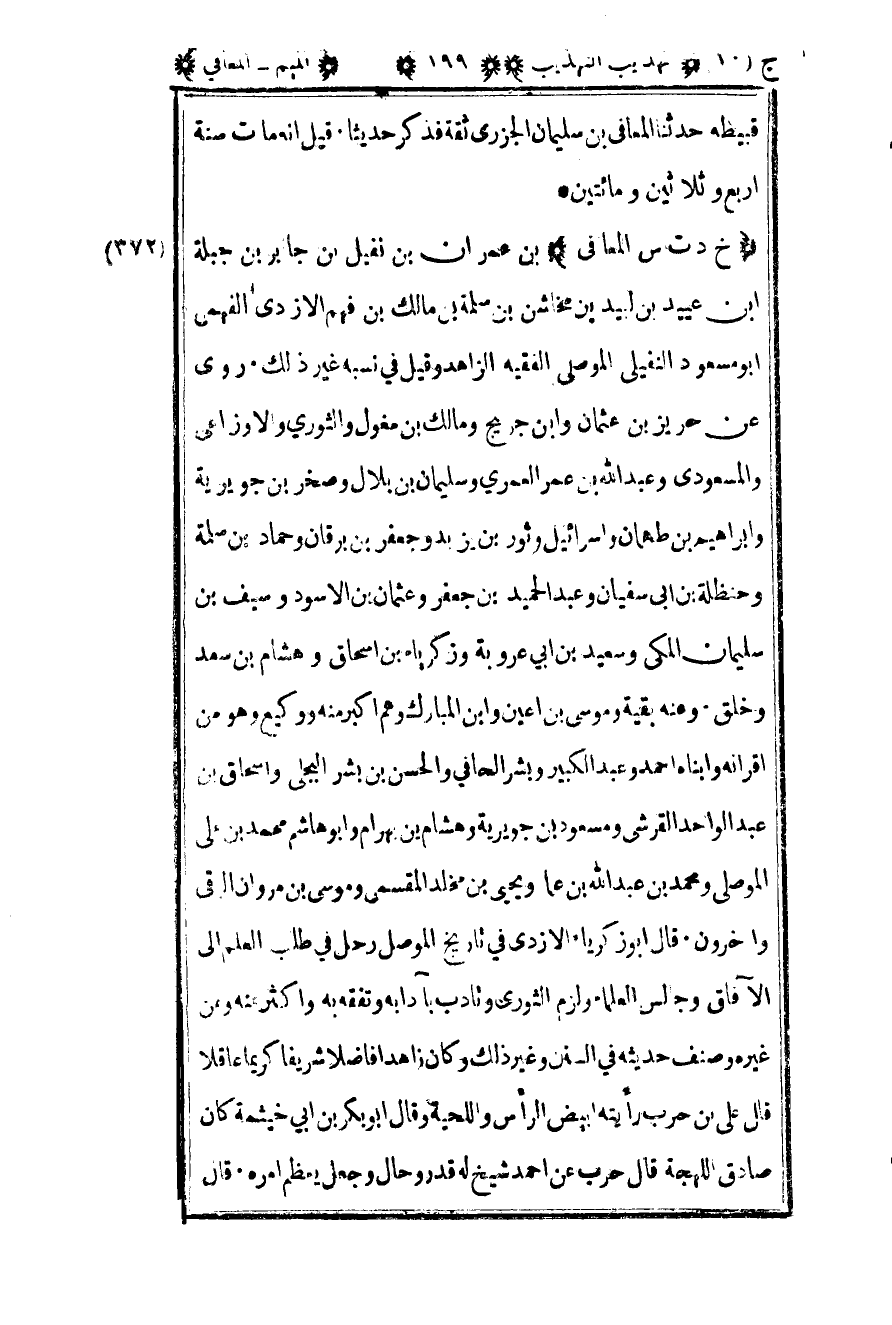 ج (١٠) تهذيب التهذيب ١٩٩ الميم ــ المعافي
قبيظه حدثنا المعافى بن سليمان الجزرى ثقة فذكر حديثا ٠ قيل انه مات سنة
اربع و ثلاثين و مائتين •
خ د ت س المعافى ﴾ بن عمران بن نفيل بن جابر بن جبلة (٣٧٢)
ابن عبيد بن لبيد بن مخاشن بن سلمة بن مالك بن فهم الازدى الفهمى
ابو مسعود النفيلى الموصلى الفقيه الزاهد وقيل في نسبه غير ذلك ٠ روى
عن حريز بن عثمان وابن جريج ومالك بن مغول والثوري والاوزاعى
والمسعودى وعبد الله بن عمر العمري وسليمان بن بلال وصخر بن جويرية
وابراهيم بن طهمان واسرائيل وثور بن يزيد وجعفر بن برقان وحماد بن سلمة
وحنظلة بن ابى سفيان وعبد الحميد بن جعفر وعثمان بن الاسود و سيف بن
سليمان المكى وسعيد بن ابي عروبة وزكرياء بن اسحاق و هشام بن سعد
وخلق ٠ وعنه بقية وموسى بن اعين وابن المبارك وهم اكبر منه ووكيع وهو من
اقرانه وابناه احمد وعبد الكبير وبشر الحافي والحسن بن بشر البجلى واسحاق بن
عبد الواحد القرشى ومسعود بن جويرية وهشام بن بهرام وابو هاشم محمد بن على
الموصلى ومحمد بن عبد الله بن عما ويحيى بن مخلد المقسمى وموسى بن مروان الرقى
واخرون ٠ قال ابو زكرياء الازدى في تاريخ الموصل رحل في طلب العلم الى
الآفاق وجالس العلماء ولزم الثورى وتادب بآدابه وتفقه به واكثر عنه وعن
غيره وصنف حديثه في السنن وغير ذلك وكان زاهدا فاضلا شريفا كريما عاقلا
قال على بن حرب رأيته ابيض الرأس واللحية وقال ابو بكر بن ابي خيثمة كان
صادق اللهجة قال حرب عن احمد شيخ له قدر وحال وجعل يعظم امره ٠ قال